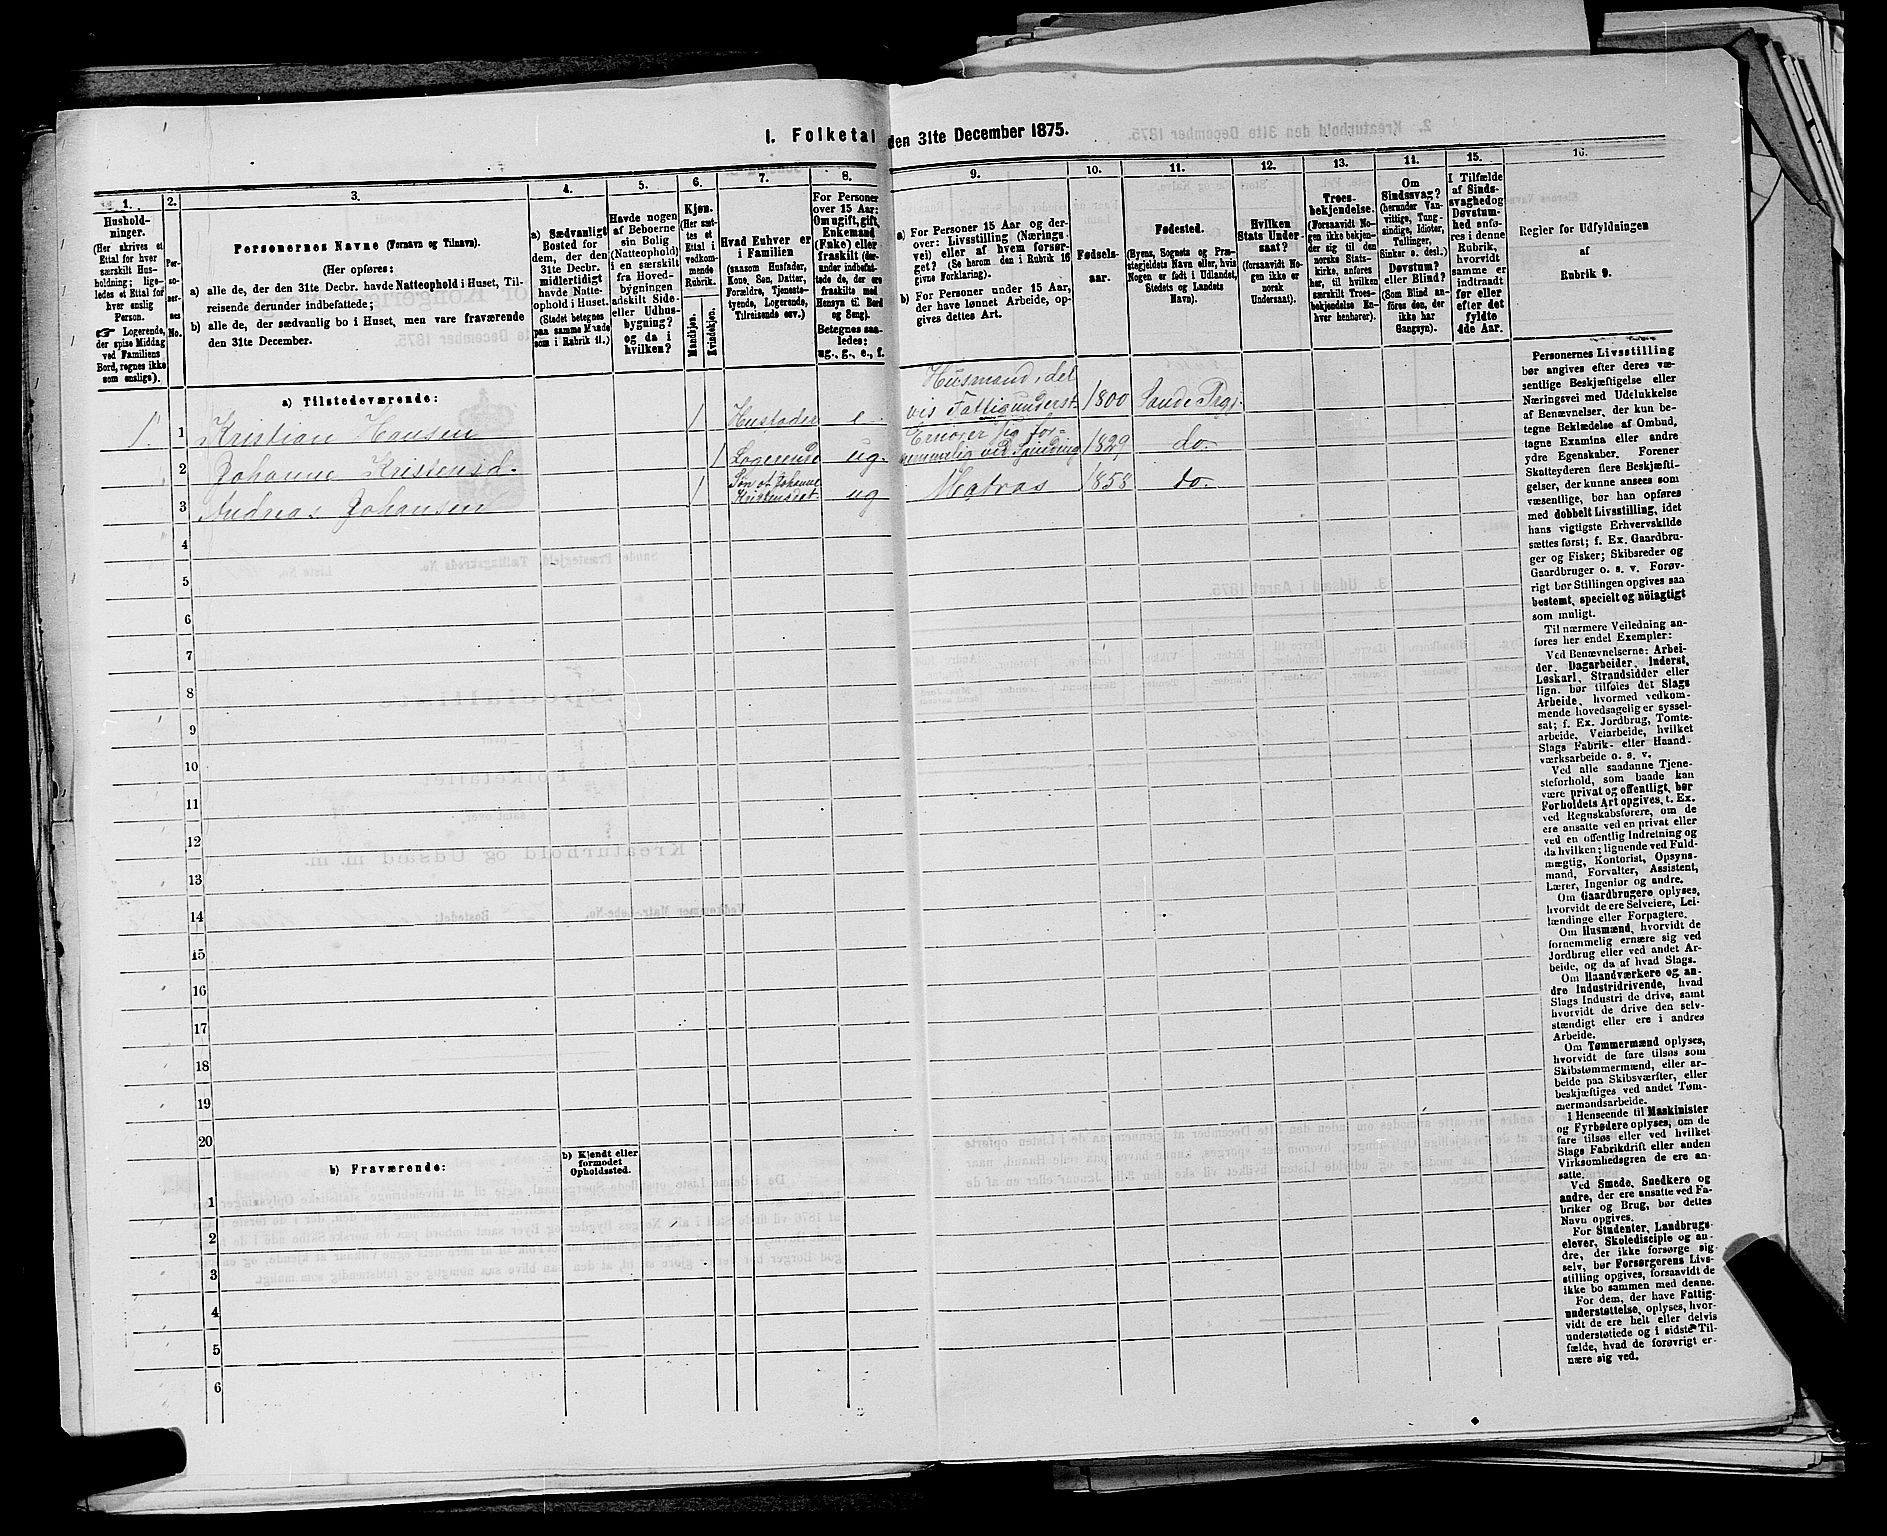 I. Folketal den 31te December 1875.
1.
2.
3.
4.
5.
6.
7.
8.
9.
10.
11.
12.
13.
14.
15.
16.
Hushold-
ninger.
(Her skrives et
Ettal for hver
særskilt Hus-
holdning; lige-
ledes et Ettal for
hver enslig
Person.
☞ Logerende,
der spise Middag
ved Familiens
Bord, regnes ikke
som enslige).
Per-
so-
ner-
nes
No.
Personernes Navne (Fornavn og Tilnavn).
(Her opføres:
a) alle de, der den 31te Decbr. havde Natteophold i Huset, Til-
reisende derunder indbefattede;
b) alle de, der sædvanlig bo i Huset, men vare fraværende
den 31te December.
a) Sædvanligt
Bosted for
dem, der den
31te Decbr.
midlertidigt
havde Natte-
ophold i Huset.
(Stedet betegnes
paa samme Maade
som i Rubrik 11.)
Havde nogen
af Beboerne
sin Bolig
(Natteophold)
i en særskilt
fra Hoved-
bygningen
adskilt Side-
eller Udhus-
bygning?
og da i
hvilken?
Kjøn.
(Her sæt-
tes et
Ettal i
vedkom-
mende
Rubrik.
Mandkjøn.
Kvindekjøn.
Hvad Enhver er
i Familien
(saasom Husfader,
Kone, Søn, Datter,
Forældre, Tjeneste-
tyende, Logerende,
Tilreisende osv.)
For Personer
over 15 Aar:
Om ugift, gift,
Enkemand
(Enke) eller
fraskilt (der-
under indbefat-
tede de, der ere
fraskilte med
Hensyn til Bord
og Seng).
Betegnes saa-
ledes:
ug., g., e., f.
a) For Personer 15 Aar og der-
over: Livsstilling (Nærings-
vei) eller af hvem forsør-
get? (Se herom den i Rubrik 16
givne Forklaring).
b) For Personer under 15 Aar,
der have lønnet Arbeide, op-
gives dettes Art.
Fødsels-
aar.
Fødested.
(Byens, Sognets og Præ-
stegjeldets Navn eller, hvis
Nogen er født i Udlandet,
Stedets og Landets
Navn).
Hvilken
Stats Under-
saat?
(forsaavidt No-
gen ikke er
norsk
Undersaat).
Troes-
bekjendelse.
(Forsaavidt No-
gen ikke bekjen-
der sig til den
norske Stats-
kirke, anføres
her, til hvilken
særskilt Troes-
bekjendelse En-
hver henhører).
Om
Sindssvag?
(herunder Van-
vittige, Tung-
sindige, Idioter,
Tullinger,
Sinker o. desl.)
Døvstum?
eller Blind?
(Som Blind an-
føres den, der
ikke har
Gangsyn).
I Tilfælde
af Sinds-
svaghed og
Døvstum-
hed anfø-
res i denne
Rubrik,
hvorvidt
samme er
indtraadt
før eller
efter det
fyldte
4de Aar.
Regler for Udfyldningen
af
Rubrik 9.
a) Tilstedeværende:
1. 1 Kristian Hansen 1 Husfader e. Husmand, del vis Fattigunderst. 1800 Sande Prgj.
2 Johanne Kristensd. 1 Logerende ug. Ernærer sig for- nemmelig ved Spinding 1829 do.
3 Andreas Johansen 1 Søn af Johanne Kristensdat. ug Matros 1858 do.
4
5
6
7
8
9
10
11
12
13
14
15
16
17
18
19
20
b) Fraværende:
b) Kjendt eller
formodet
Opholdssted.
1
2
3
4
5
6
Personernes Livsstilling
bør angives efter deres væ-
sentlige Beskjæftigelse eller
Næringsvei med Udelukkelse
af Benævnelser, der kun be-
tegne Beklædelse af Ombud,
tagne Examina eller andre
ydre Egenskaber. Forener
Skatteyderen flere Beskjæfti-
gelser, der kunne ansees som
væsentlige, bør han opføres
med dobbelt Livsstilling, idet
hans vigtigste Erhvervskilde
sættes først; f. Ex. Gaardbru-
ger og Fisker; Skibsreder og
Gaardbruger o. s. v. Forøv-
rigt bør Stillingen opgives saa
bestemt, specielt og nøiagtigt
som muligt.
Til nærmere Veiledning an-
føres her endel Exempler:
Ved Benævnelserne: Arbei-
der, Dagarbeider, Inderst,
Løskarl, Strandsidder eller
lign. bør tilføies det Slags
Arbeide, hvormed vedkom-
mende hovedsagelig er syssel-
sat; f. Ex. Jordbrug, Tomte-
arbeide, Veiarbeide, hvilket
Slags Fabrik- eller Haand-
værksarbeide o. s. v.
Ved alle saadanne Tjene-
steforhold, som baade kan
være privat og offentligt, bør
Forholdets Art opgives, t. Ex.
ved Regnskabsførere, om de
ere ansatte ved en privat eller
ved en offentlig Indretning og
da hvilken; lignende ved Fuld-
mægtig, Kontorist, Opsyns-
mand, Forvalter, Assistent,
Lærer, Ingeniør og andre.
Om Gaardbrugere oplyses,
hvorvidt de ere Selveiere, Lei-
lændinge eller Forpagtere.
Om Husmænd, hvorvidt de
fornemmelig ernære sig ved
Jordbrug eller ved andet Ar-
beide, og da af hvad Slags.
Om Haandværkere og an-
dre Industridrivende, hvad
Slags Industri de drive, samt
hvorvidt de drive den selv-
stændigt eller ere i andres
Arbeide.
Om Tømmermænd oplyses,
hvorvidt de fare tilsøs som
Skibstømmermænd, eller ar-
beide paa Skibsværfter, eller
beskjæftiges ved andet Tøm-
mermandsarbeide.
I Henseende til Maskinister
og Fyrbødere oplyses, om de
fare tilsøs eller ved hvilket
Slags Fabrikdrift eller anden
Virksomhedsgren de ere an-
satte.
Ved Smede, Snedkere og
andre, der ere ansatte ved Fa-
briker og Brug, bør dettes
Navn opgives.
For Studenter, Landbrugs-
elever, Skoledisciple og an-
dre, der ikke forsørge sig
selv, bør Forsørgerens Livs-
stilling opgives, forsaavidt de
ikke bo sammen med denne.
For dem, der have Fattig-
understøttelse, oplyses, hvor-
vidt de ere helt eller delvis
understøttede og i sidste Til-
fælde, hvad de forøvrigt er-
nære sig ved.